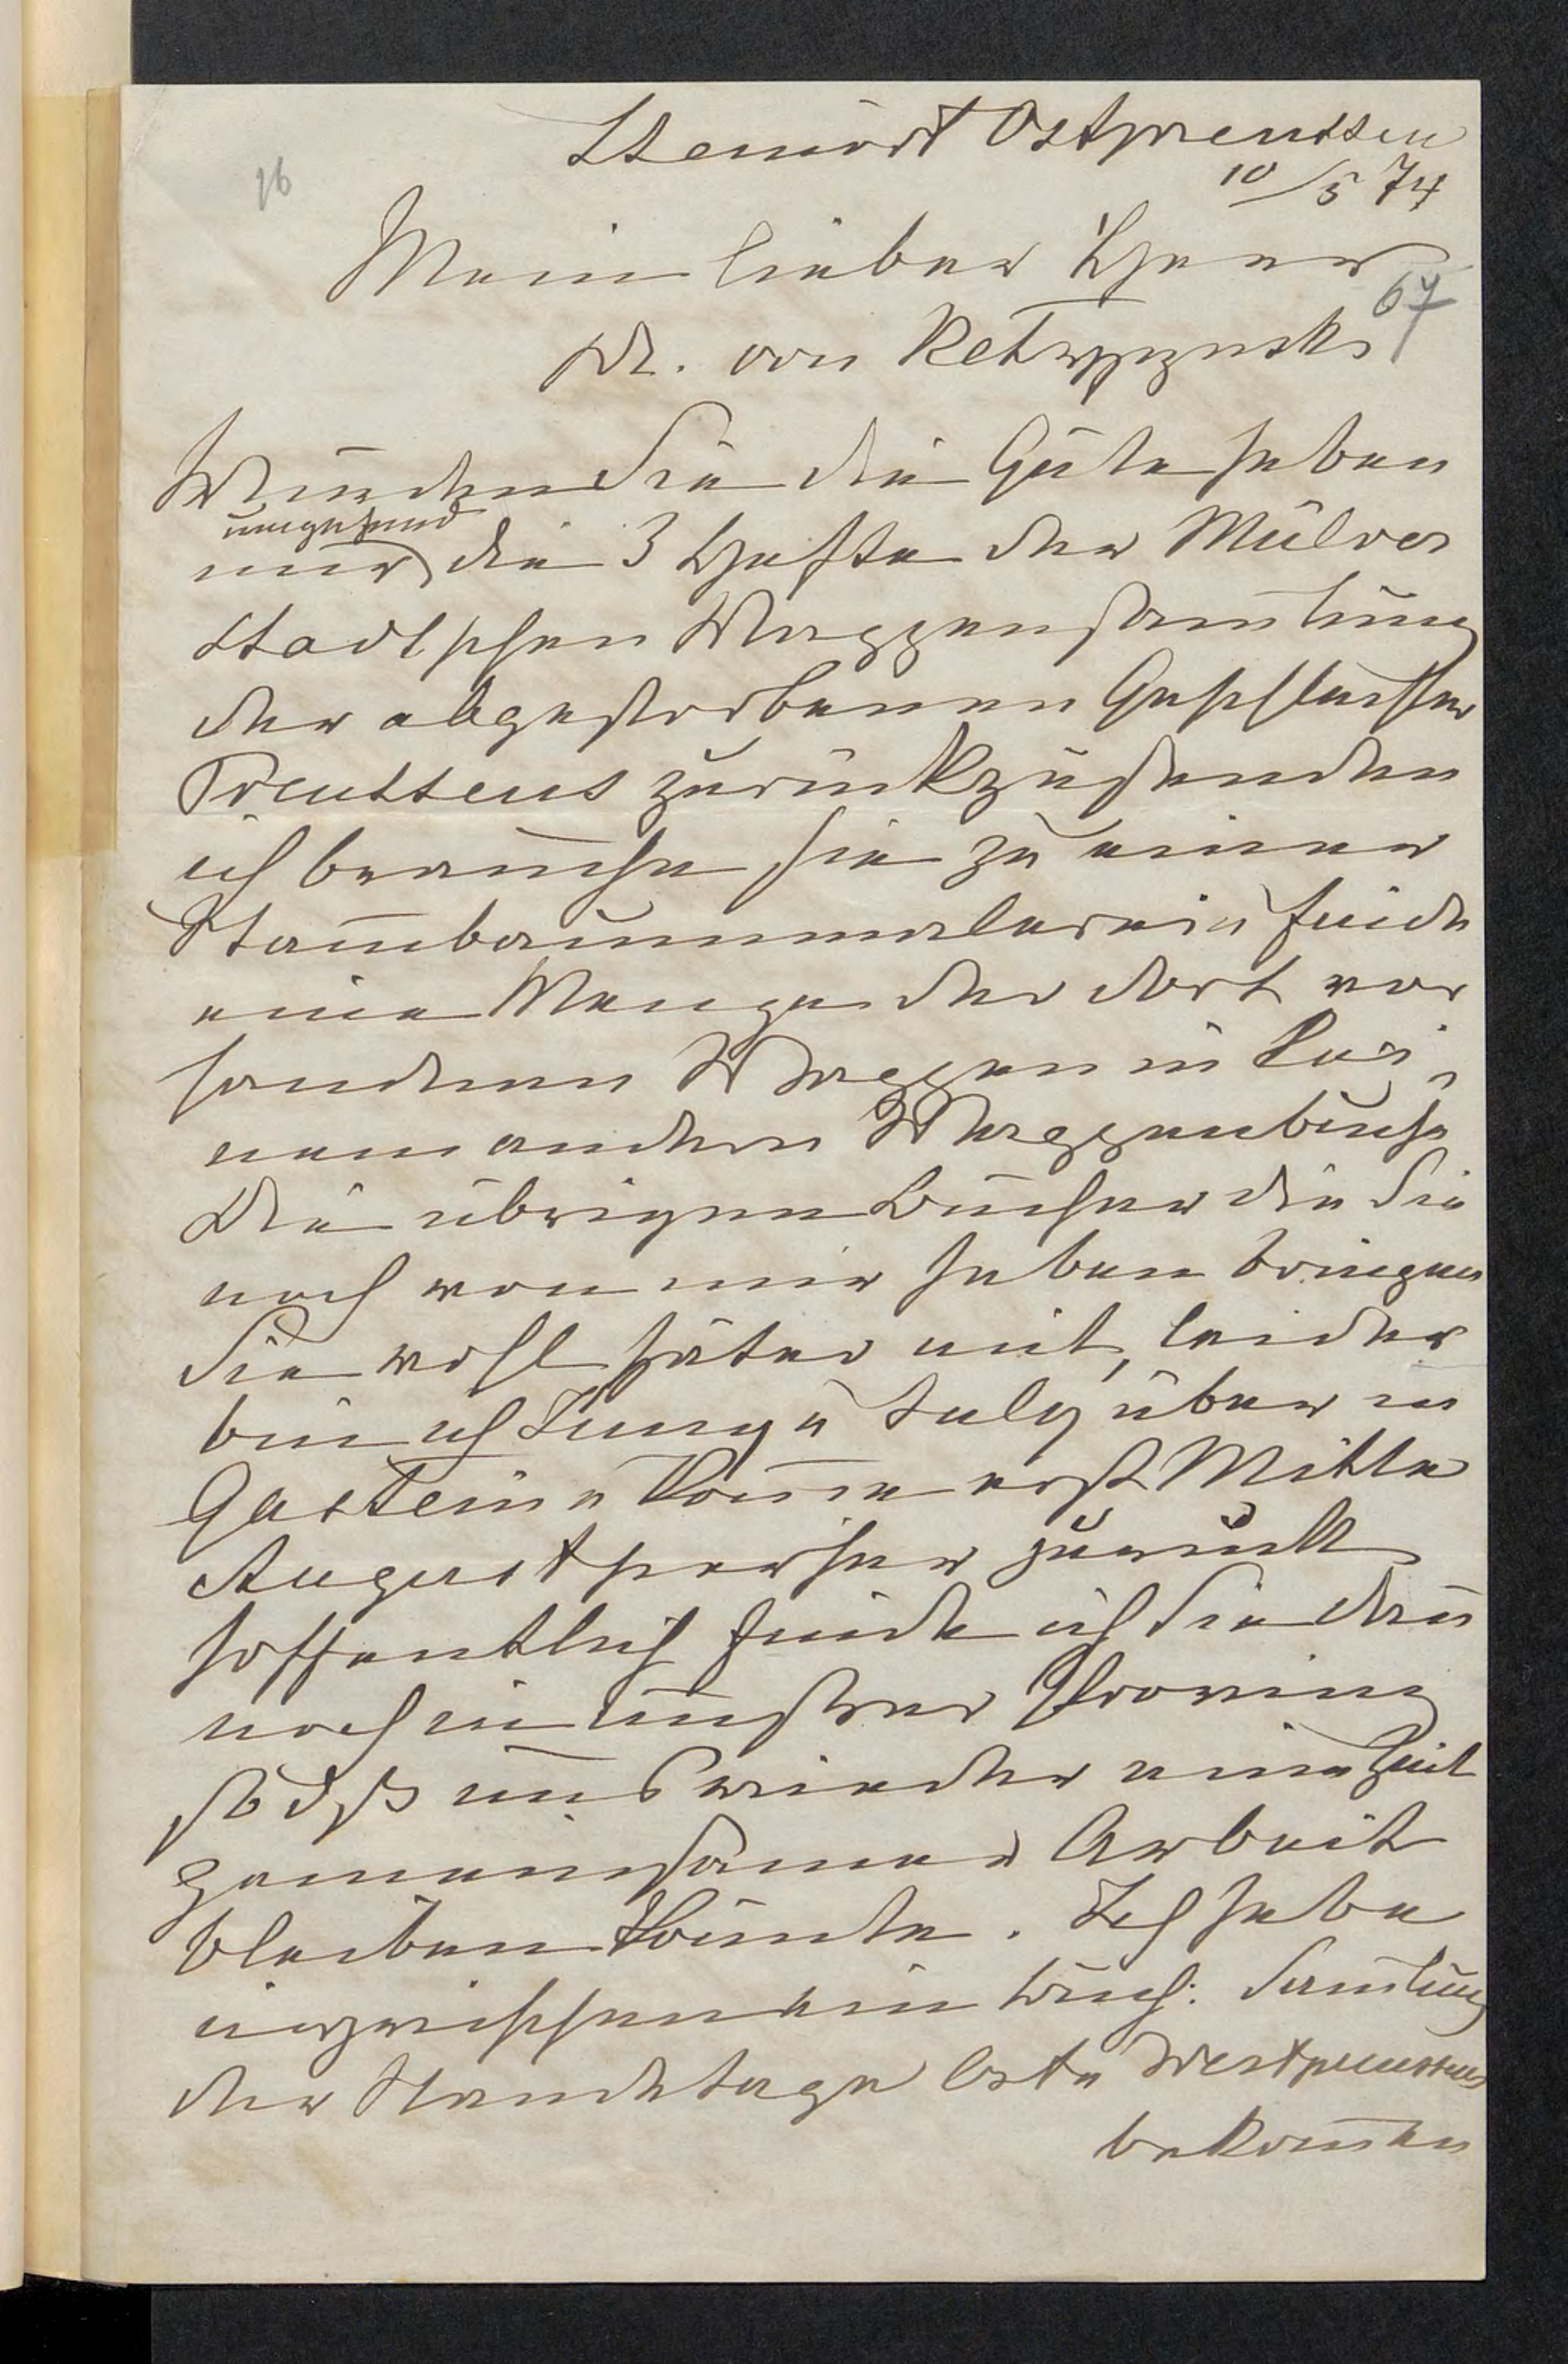 Steinort Ostpreussen
10/5 74
16
Mein lieber Herr
67
Dr. von Ketrzynski
Würden Sie die Güte haben
umgehend
mir die 3 Hefte der Mülver
stedtschen Wappensamlung
der abgestorbenen Geschlechter
Preussens zurückzusenden
ich brauche sie zu einer
Stambaummalerei u finde
eine Menge der dort vor
handenen Wappen in kei,
nem andern Wappenbuche
Die übrigen Bücher die Sie
noch von mir haben bringen
Sie wohl später mit, leider
bin ich Juny u July über in
Gastein u kome erst Mitte
August hierher zurück
hoffentlich finde ich Sie dan
noch in unsrer Provinz
so dß uns wieder eine Zeit
gemeinsamer Arbeit
bleiben könnte. Ich habe
inzwischen ein Buch: Samlung
der Landtage Ost u Westpreussens
bekomen